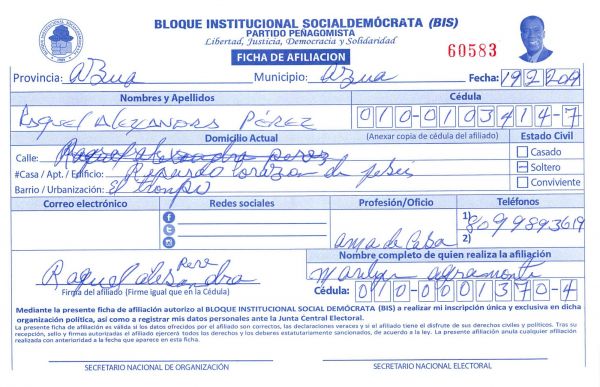 BLOQUE INSTITUCIONAL SOCIALDEMÓCRATA (BIS)
PARTIDO PEÑAGOMISTA
Libertad, Justicia, Democracia y Solidaridad
60583
FICHA DE AFILIACION
Provincia: Azua Municipio: Azua Fecha: 19 2 2019
Nombres y Apellidos Cédula
RAQUEL ALEXANDRA PÉREZ 010-0103414-7
Domicilio Actual (Anexar copia de cédula del afiliado) Estado Civil
Calle: Raquel alesandra perez
Casado
#Casa / Apt. / Edificio: Reparto corazon de jesus
Soltero
Barrio / Urbanización: El trompo
Conviviente
Correo electrónico Redes sociales Profesión/Oficio Teléfonos
1) 8099893619
2)
ama de Casa
Nombre completo de quien realiza la afiliación
Raquel alesandra Perez
Marilyn agramonte
Firma del afiliado (Firme igual que en la Cédula)
Cédula: 010-0001370-4
Mediante la presente ficha de afiliación autorizo al BLOQUE INSTITUCIONAL SOCIAL DEMÓCRATA (BIS) a realizar mi inscripción única y exclusiva en dicha
organización política, así como a registrar mis datos personales ante la Junta Central Electoral.
La presente ficha de afiliación es válida si los datos ofrecidos por el afiliado son correctos, las declaraciones veraces y si el afiliado tiene el disfrute de sus derechos civiles y políticos. Tras su
recepción, sello y firma autorizadas el afiliado ejercerá todos los derechos y los deberes estatutariamente sancionados, de acuerdo a la ley. La presente afiliación anula cualquier afiliación
realizada con anterioridad a la fecha que aparece en esta ficha.
SECRETARIO NACIONAL DE ORGANIZACIÓN SECRETARIO NACIONAL ELECTORAL